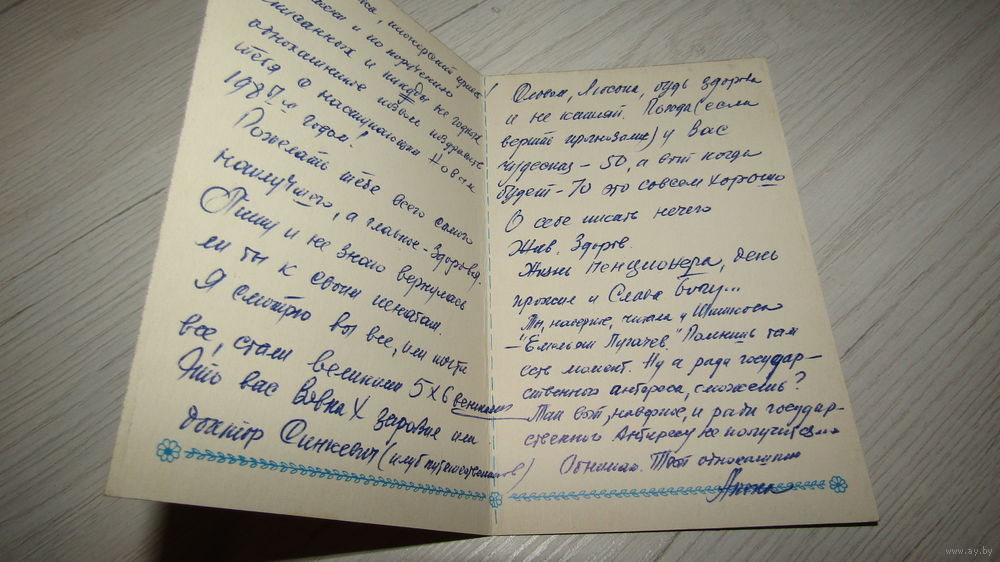 пионерский привет
и по поручению
списанных и никуды не годных
однокашников позволь поздравить
тебя с наступающим Новым
1987 м годом!
Пожелать тебе всего самого
наилучшего, а главное - Здоровья.
Пишу и не знаю вернулась
ли ты к своим пенатам.
Я смотрю вы все, или почти
все, стали великими 5х6 великими
Что вас X здоровье или
доктор Синкевич (клуб путешественников)
Словом, Люсьена, будь здорова
и не кашляй. Погода (если
верить прогнозами) у Вас
чудесная - 50, а вот когда
будет - 70 это совсем хорошо
О себе писать нечего
Жив. Здоров.
Жизнь Пенционера, день
прожит и Слава богу...
Ты, наверное, читала у Шишкова
"Емельян Пугачев". Помнишь там
есть момент. Ну а ради государ-
ственного антереса, сможешь?
Так вот, наверное, и ради государ-
ственного Антиресу не получится...
Обнимаю. Твой однокашник
www.ay.by